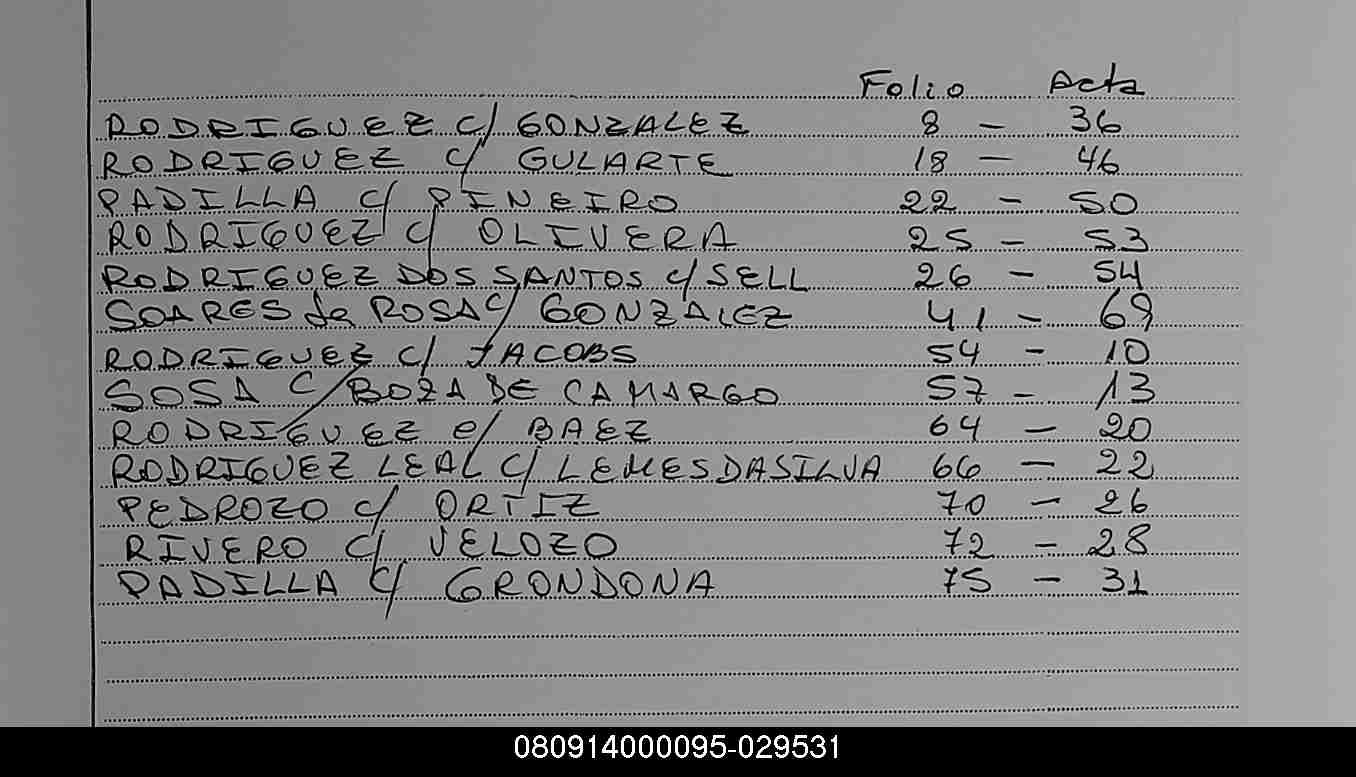 Folio Acta
RODRIGUEZ c/ GONZALEZ 8 - 36
RODRIGUEZ c/ GULARTE 18 - 46
PADILLA c/ PINEIRO 22 - 50
RODRIGUEZ c/ OLIVERA 25 - 53
RODRIGUEZ DOS SANTOS c/ SELL 26 - 54
SOARES da ROSA c/ GONZALEZ 41 - 69
RODRIGUEZ c/ JACOBS 54 - 10
SOSA c/ BOZA DE CAMARGO 57 - 13
RODRIGUEZ c/ BAEZ 64 - 20
RODRIGUEZ LEAL c/ LEMES DA SILVA 66 - 22
PEDROZO c/ ORTIZ 70 - 26
RIVERO c/ VELOZO 72 - 28
PADILLA c/ GRONDONA 75 - 31
080914000095-029531